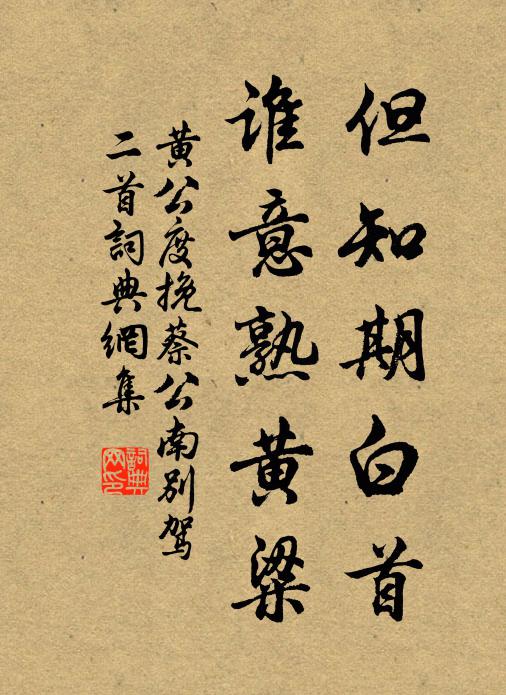 但知期白首
谁意熟黄粱
黄公度挽蔡公南别驾
二首詞典網集
詞典
网印